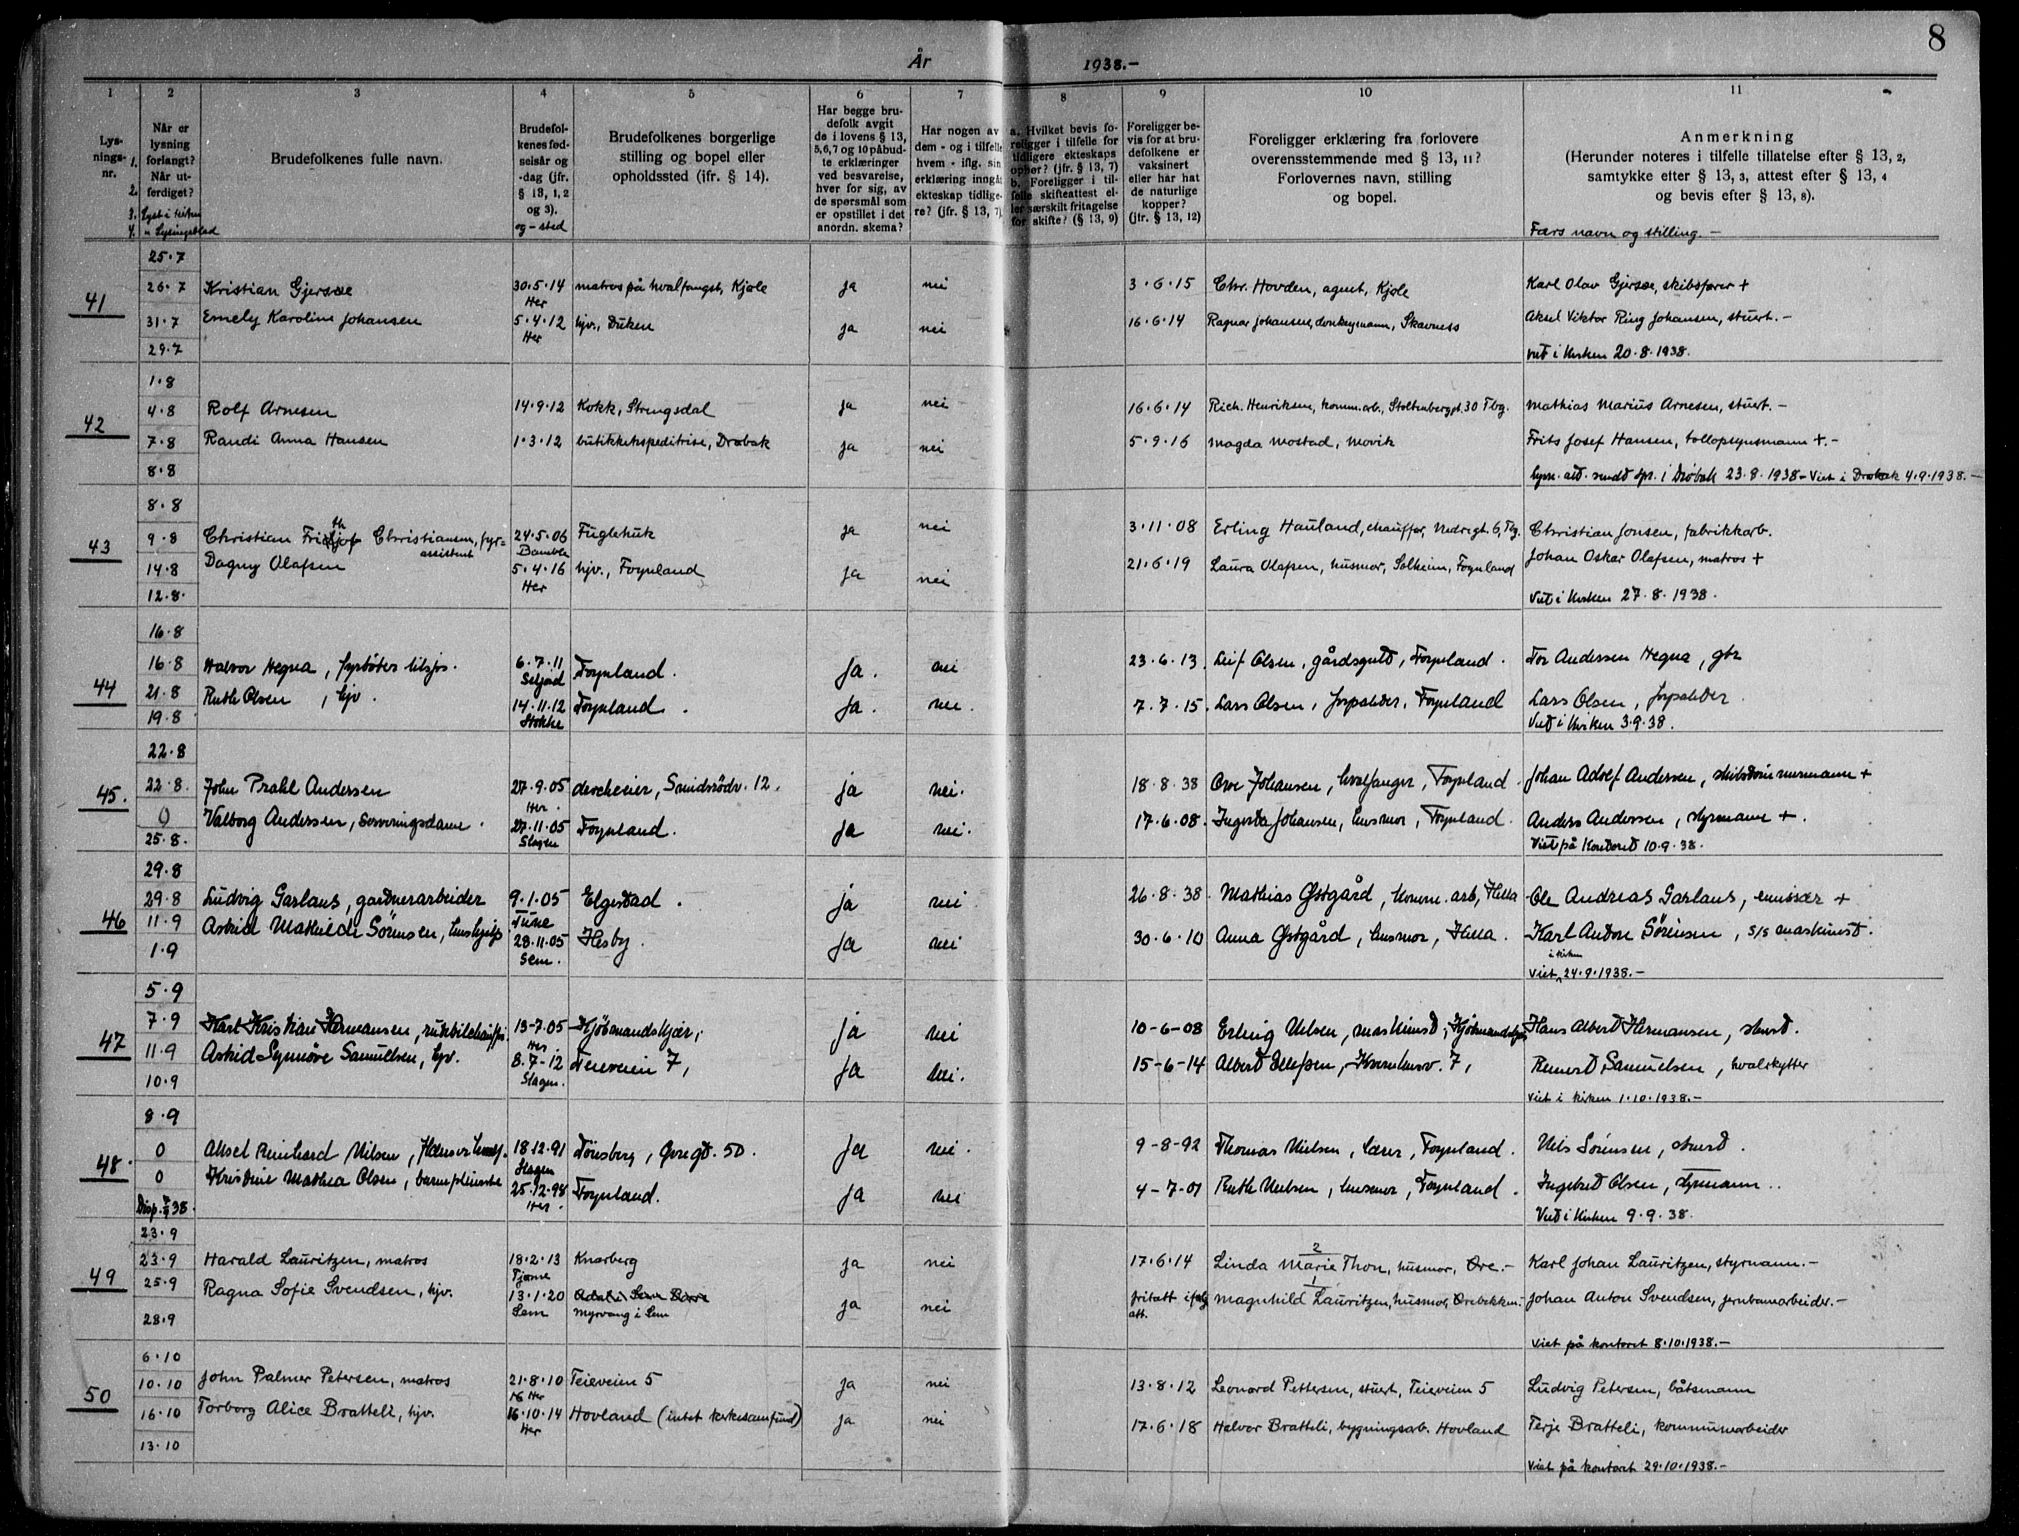 8
År 1938.-
1 2 3 4 5 6 7 8 9 10 11
Lysnings-nr. 1. 2. 3. 4.
Når er lysning forlangt? Når utferdiget? Lyst i kirken " Lysingsblad
Brudefolkenes fulle navn.
Brudefolkenes fødselsår og -dag (jfr. § 13, 1, 2 og 3). og -sted
Brudefolkenes borgerlige stilling og bopel eller opholdssted (jfr. § 14).
Har begge brudefolk avgit de i lovens § 13, 5, 6, 7 og 10 påbudte erklæringer ved besvarelse, hver for sig, av de spørsmål som er opstillet i det anordn. skema?
Har nogen av dem - og i tilfelle hvem - iflg. sin erklæring inngått ekteskap tidligere? (jfr. § 13, 7)
a. Hvilket bevis foreligger i tilfelle for tidligere ekteskaps ophør? (jfr. § 13, 7) b. Foreligger i tilfelle skifteattest eller særskilt fritagelse for skifte? (§ 13, 9)
Foreligger bevis for at brudefolkene er vaksinert eller har hat de naturlige kopper? (jfr. § 13, 12)
Foreligger erklæring fra forlovere overensstemmende med § 13, 11? Forlovernes navn, stilling og bopel.
Anmerkning (Herunder noteres i tilfelle tillatelse efter § 13, 2, samtykke etter § 13, 3, attest efter § 13, 4 og bevis efter § 13, 8).
Fars navn og stilling.-
41
25.7
26.7 Kristian Gjersøe 30.5.14 Her matros på hvalfangst, Kjøle ja nei 3.6.15 Chr. Hovden, agent, Kjøle Karl Olav Gjersøe, skibsfører +
31.7 Emely Karoline Johansen 5.4.12 Her hjv., Duken ja nei 16.6.14 Ragnar Johansen, donkeymann, Skavness Aksel Viktor Ring Johansen, stuert.-
29.7 viet i kirken 20.8.1938.
42
1.8
4.8 Rolf Arnesen 14.9.12 Kokk, Strengsdal ja nei 16.6.14 Rich. Henriksen, komm.arb., Stoltenberggt. 30 Tbg. Mathias Marius Arnesen, stuert.-
7.8 Randi Anna Hansen 1.3.12 butikkekspeditrise, Drøbak ja nei 5.9.16 Magda Mostad, Movik Frits Josef Hansen, tollopsynsmann +.-
8.8 Lysn. att. sendt spr. i Drøbak 23.8.1938 - Viet i Drøbak 4.9.1938.-
43
8.8
9.8 Christian Fridtjof Christiansen, fyr-assistent 24.5.06 Bamble Fuglehuk ja nei 3.11.08 Erling Hauland, chauffør, Nedregt. 6, Tbg. Christian Jonsen, fabrikkarb.
14.8 Dagny Olafsen 5.4.16 Her hjv., Føynland ja nei 21.6.19 Laura Olafsen, husmor, Solheim, Føynland Johan Oskar Olafsen, matros +
12.8. Viet i kirken 27.8.1938.
44
16.8
16.8 Halvor Hegna, fyrbøter tilsjøs. 6.7.11 Seljord Føynland. ja. nei 23.6.13. Leif Olsen, gårdsgutt, Føynland. Tor Andersen Hegna, gbr
21.8 Ruth Olsen, hjv. 14.11.12 Stokke Føynland. ja. nei. 7.7.15. Lars Olsen, forpakter, Føynland Lars Olsen, forpakter.
19.8 Viet i kirken 3.9.38.
45.
22.8
22.8. John Prahl Andersen 27.9.05 Her. , Smidsrødv. 12. ja nei. 18.8.38 Ove Johansen, hvalfanger, Føynland. Johan Adolf Andersen, skibstømmermann +
0 Valborg Andersen, Serveringsdame. 27.11.05 Slagen Føynland. ja nei. 17.6.08. Ingerda Johansen, husmor, Føynland. Anders Andersen, styrmann +.
25.8. Viet på kontoret 10.9.38.
46
29.8
29.8 Ludvig Garlaus, gartnerarbeider 9.1.05 Tune Elgestad. ja nei. 26.8.38. Mathias Østgård, komm. arb, Hella Ole Andreas Garlaus, emissær +
11.9 Astrid Mathilde Sørensen, hushjelp 28.11.05 Sem. Hesby. ja nei 30.6.10 Anna Østgård, husmor, Hella. Karl Anton Sørensen, s/s maskinist.
1.9 Viet i kirken 24.9.1938.-
47
5.9
7.9 Karl Kristian Hermansen, rutebilchauffør. 13-7.05 Her. Kjøbmandskjær, ja nei 10-6-08 Erling Nilsen, maskinist, Kjøbmandskjær Hans Albert Hermansen, stuert.
11.9 Astrid Synnøve Samuelsen, hjv. 8.7-12 Slagen. Teieveien 7, ja nei. 15-6-14 Albert Ellefsen, 7, Reinert Samuelsen, hvalskytter
10.9 viet i kirken 1.10.1938.-
48.
8.9
0 Aksel Reinhard Nilsen, 18.12.91 Slagen Tønsberg, Øvregt. 50. ja nei. 9-8-92 Thomas Nielsen, lærer, Føynland. Nils Sørensen, stuert.
0 Kristine Mathea Olsen, barnepleierske 25.12.98 Her. Føynland. ja nei 4-7-01 Ruth Nielsen, husmor, Føynland. Ingebret Olsen, styrmann..
Disp. 38. Viet i kirken 9.9.38.
49
23.9
23.9 Harald Lauritzen, matros 18.2.13 Tjøme Knarberg ja nei 17.6.14 Linda Marie Thon, husmor, Øre.- 2 Karl Johan Lauritzen, styrmann.-
25.9 Ragna Sofie Svendsen, hjv. 13.1.20 Sem Myrvang i Sem ja nei fritatt ifølg att. 1 Magnhild Lauritzen, husmor, Ørebekken.- Johan Anton Svendsen, jernbanearbeider.-
28.9 Viet på kontoret 8.10.1938.-
50
6.10
10.10 John Palmer Petersen, matros 21.8.10 Her Teieveien 5 ja nei 13.8.12 Leonard Pettersen, stuert, Teieveien 5 Ludvig Petersen, båtsmann
16.10 Torborg Alice Bratteli, hjv. 16.10.14 Her Hovland (intet kirkesamfund) ja nei 17.6.18 Halvor Bratteli, bygningsarb. Hovland Terje Bratteli, kommunearbeider
13.10 Viet på kontoret 29.10.1938.-